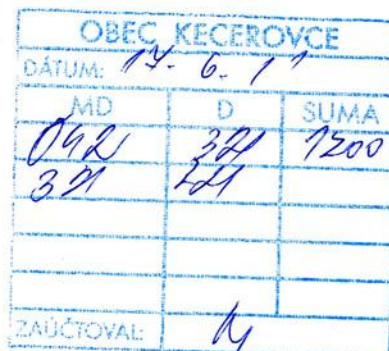 OBEC KECEROVCE
DÁTUM: 17. 6. 11
MD D SUMA
042 321 1200
321 221
ZAÚČTOVAL: